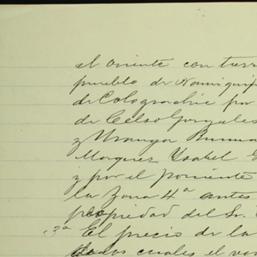 al oriente con terr
pueblo de Namiquip
de Cologradic por
de Celso Gonzales
y Uranga
Marquez Ysabel
y por el poniente
la Zona 4ª antes
propiedad del Sr.
3ª El precio de la
cuales el